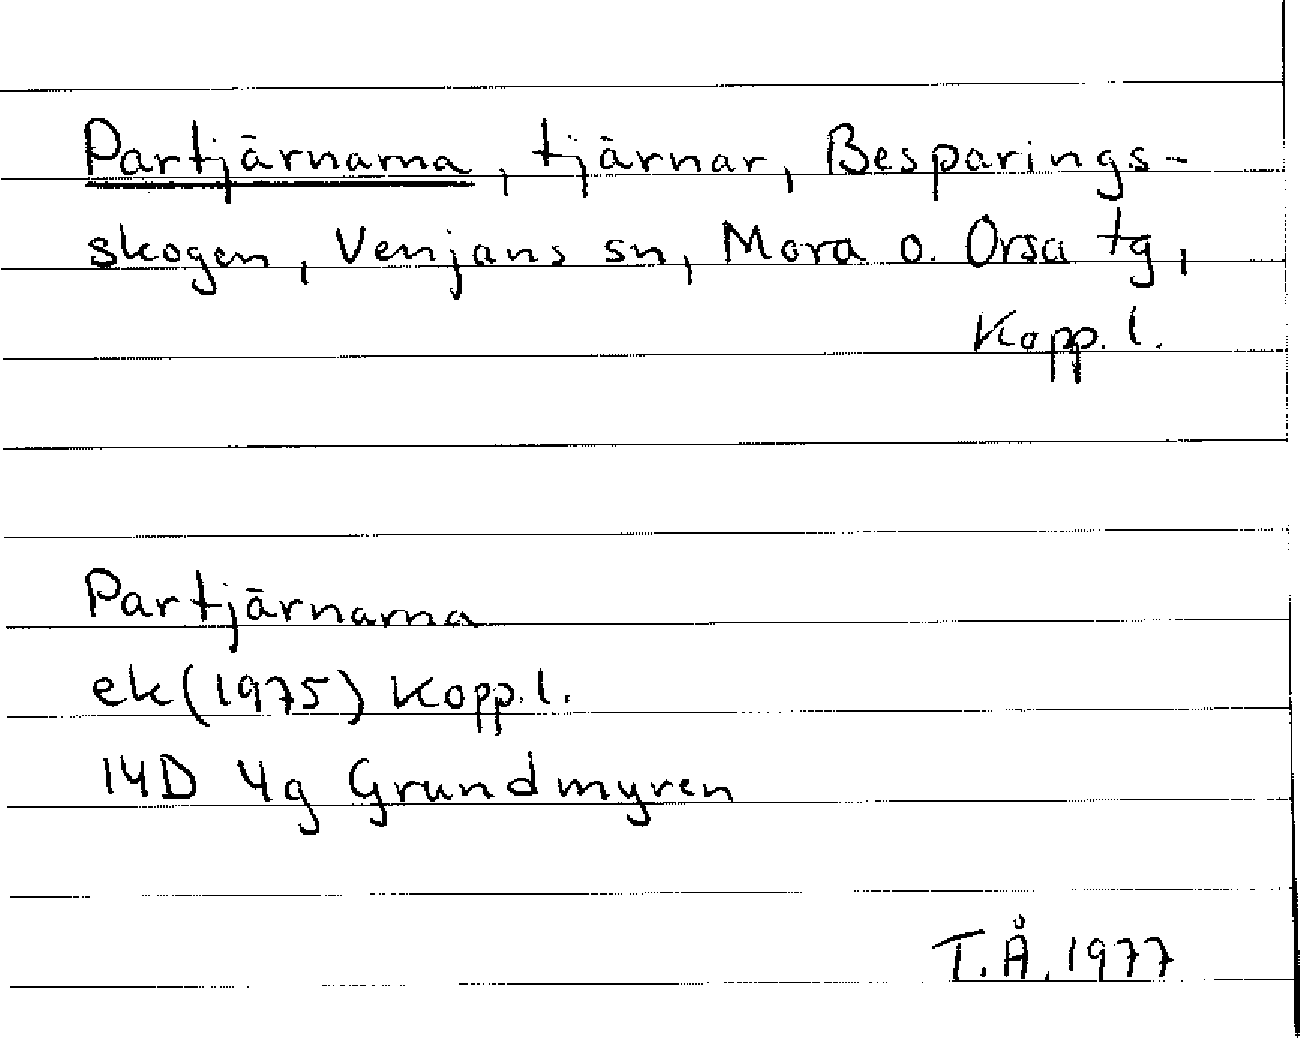 Partjärnarna, tjärnar, Besparings-
skogen, Venjans sn, Mora o. Orsa tg,
Kopp. l.
Partjärnarna
ek (1975) Kopp. l.
14D 4g Grundmyren
T. Å. 1977